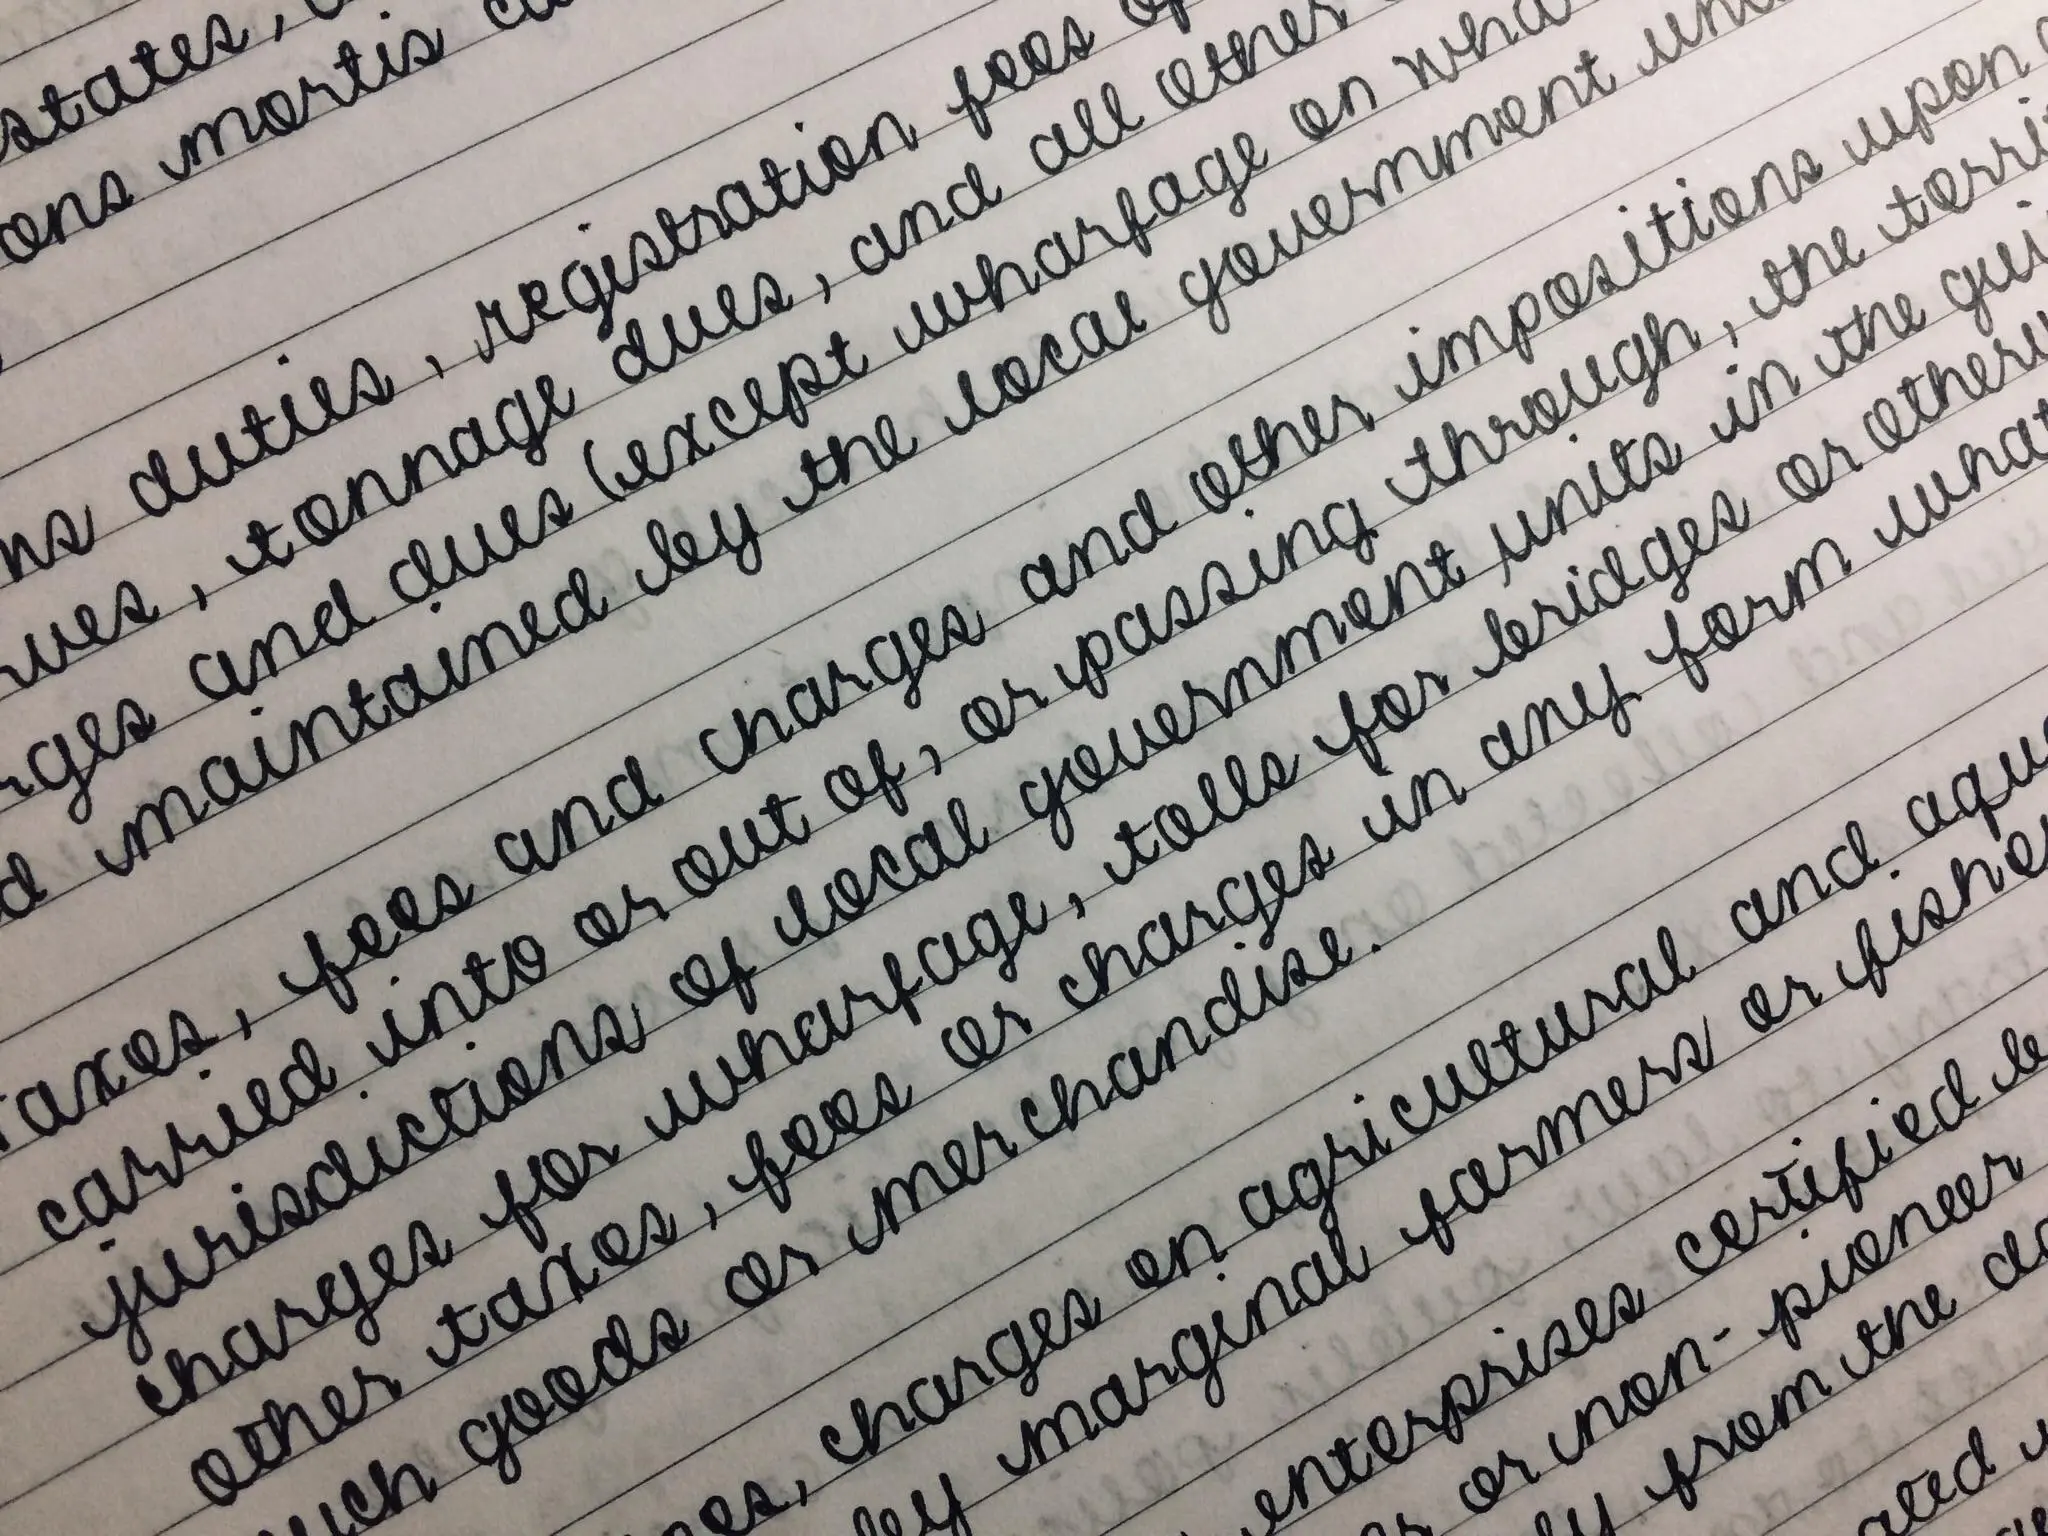 states,
ons mortis
ns duties, registration fees
ves, tonnage dues, and all other
rges and dues (except wharfage on wha
d maintained by the local government un
axes, fees and charges and other impositions upon
carried into or out of, or passing through, the territ
jurisdictions of local government units in the gui
charges for wharfage, tolls for bridges or otherw
other taxes, fees or charges in any form what
uch goods or merchandise.
es, charges on agricultural and aqu
by marginal farmers or fishe
enterprises certified b
or non-pioneer
ly from the da
ated